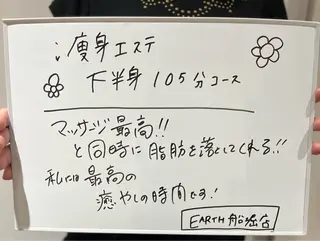 痩身エステ
下半身 105分コース
マッサージ最高!!
と同時に脂肪を落としてくれる!!
私には最高の
癒やしの時間です!
EARTH船堀店